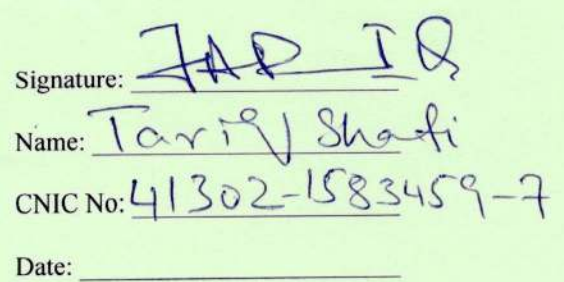 Signature: TARIQ
Name: Tariq Shafi
CNIC No: 41302-1583459-7
Date: